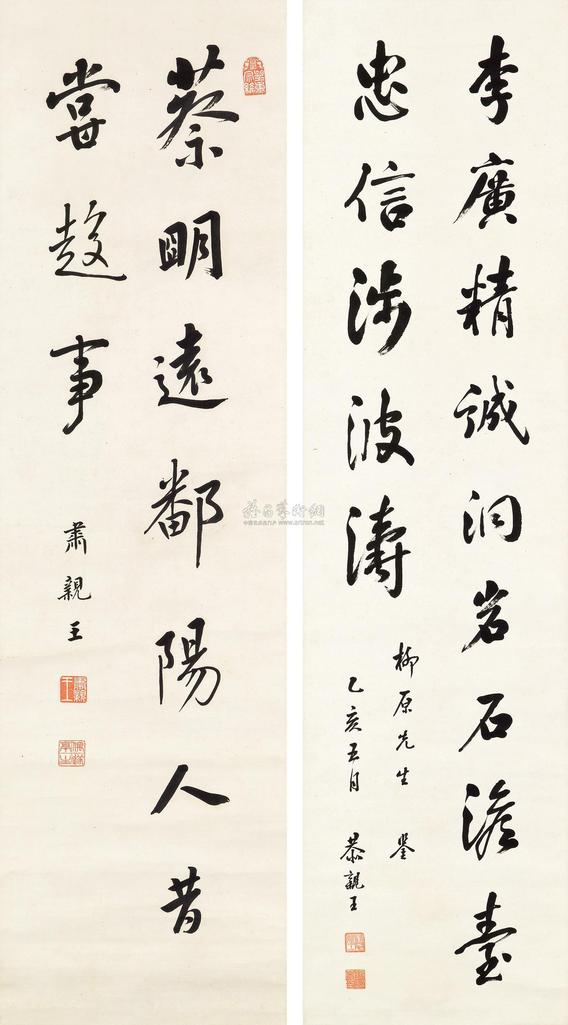 李廣精誠洞岩石澹臺
忠信涉波濤
柳原先生 鑒
乙亥五月 恭親王
蔡明遠鄱陽人昔
嘗趍事
肅親王
www.artron.net